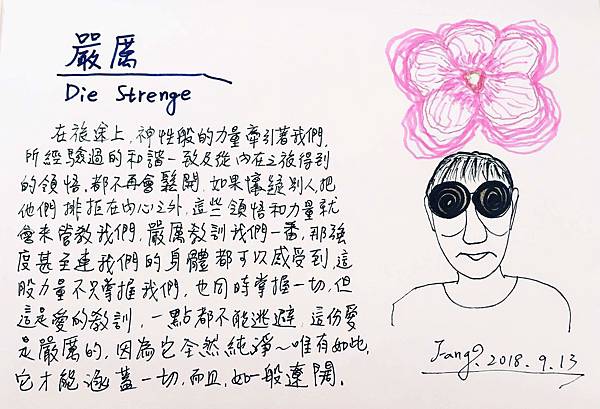 嚴厲
Die Strenge
在旅途上,神性般的力量牽引著我們,
所經驗過的和諧一致及從內在之旅得到
的領悟,都不再會鬆開.如果懷疑別人,把
他們排拒在內心之外,這些領悟和力量就
會來管教我們,嚴厲教訓我們一番,那強
度甚至連我們的身體都可以感受到,這
股力量不只掌握我們,也同時掌握一切,但
這是愛的教訓,一點都不能逃避.這份愛
是嚴厲的,因為它全然純淨~唯有如此,
它才能涵蓋一切,而且,如一般遼闊.
Fang 2018.9.13